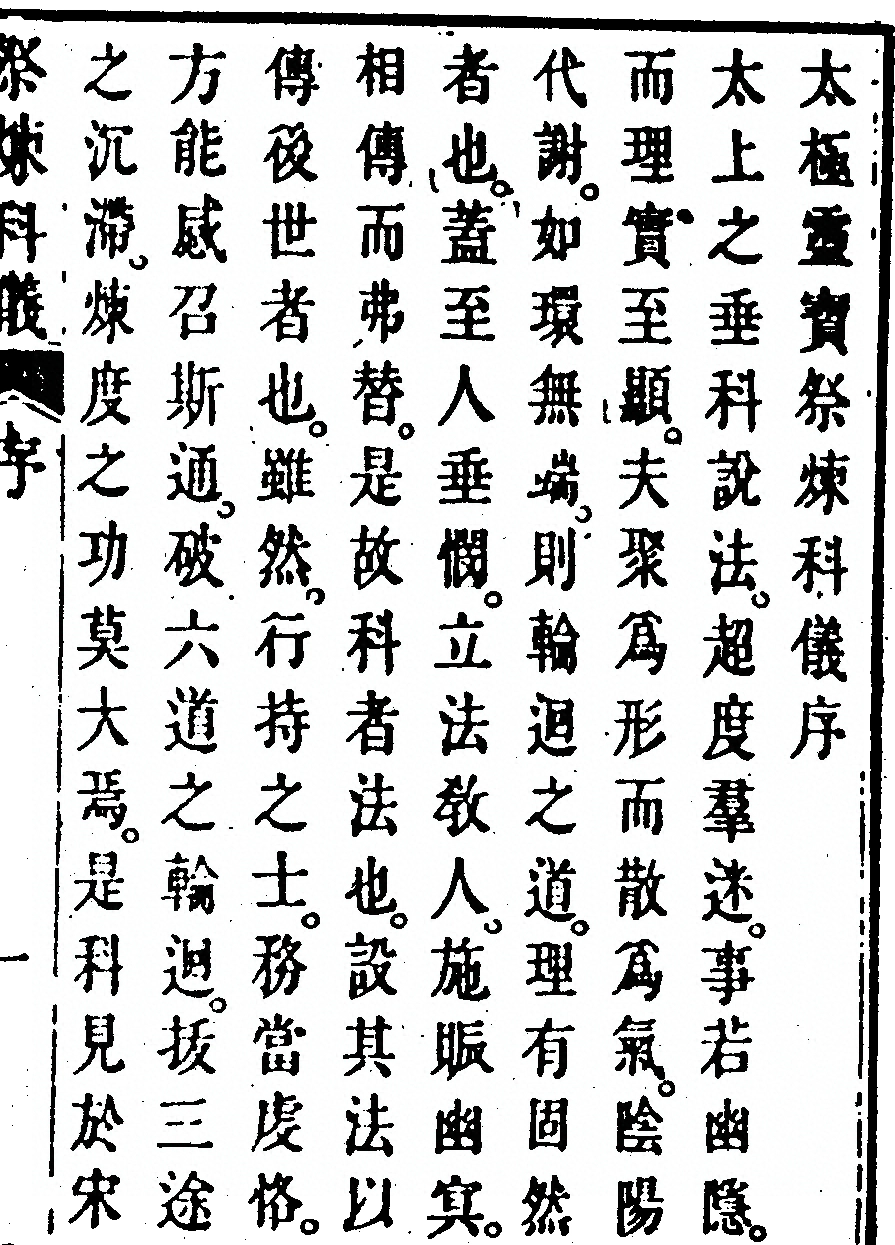 太極靈寶祭煉科儀序
太上之垂科說法。超度羣迷。事若幽隱。
而理實至顯。夫聚爲形而散爲氣。陰陽
代謝。如環無端。則輪迴之道。理有固然
者也。蓋至人垂憫。立法敎人。施賑幽冥。
相傳而弗替。是故科者法也。設其法以
傳後世者也。雖然。行持之士。務當虔恪。
方能感召斯通。破六道之輪迴。拔三途
之沉滯。煉度之功莫大焉。是科見於宋
祭煉科儀 序 一